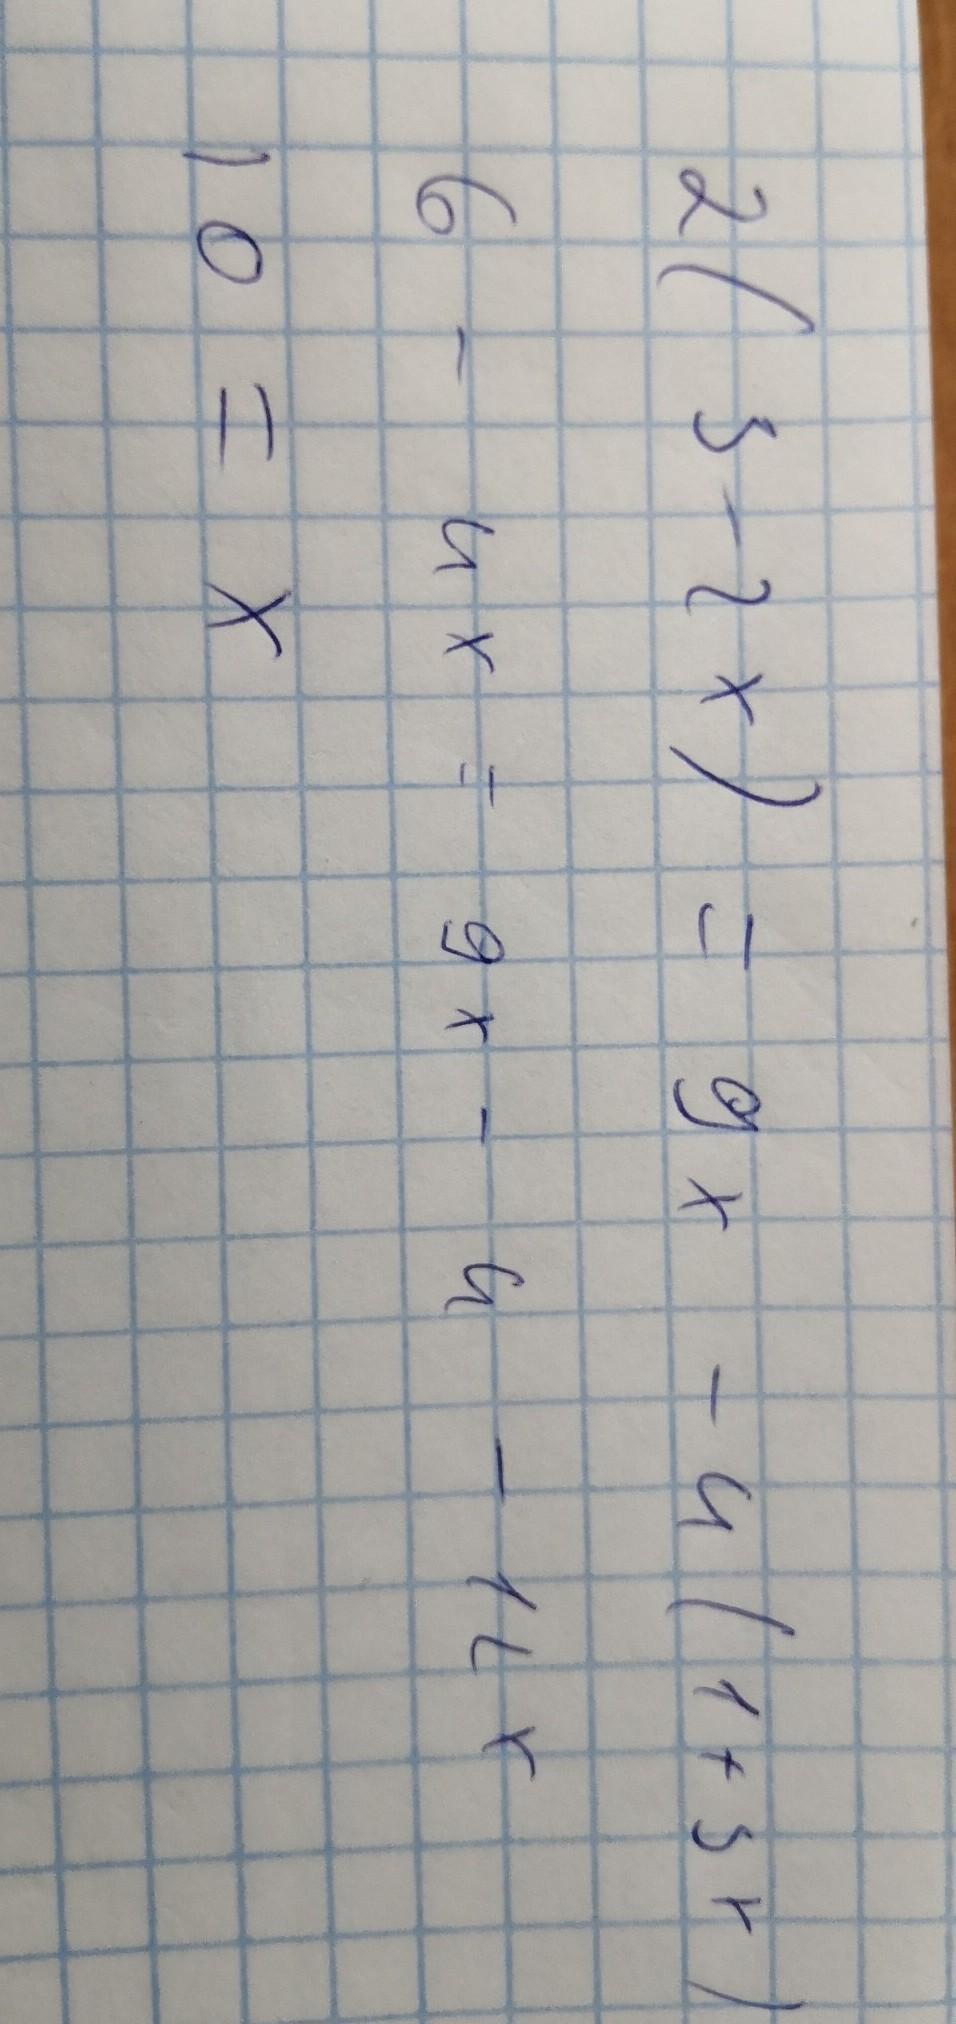 2(3-2x) = 9x - 4(1+3x)
6 - 4x = 9x - 4 - 12x
10 = x